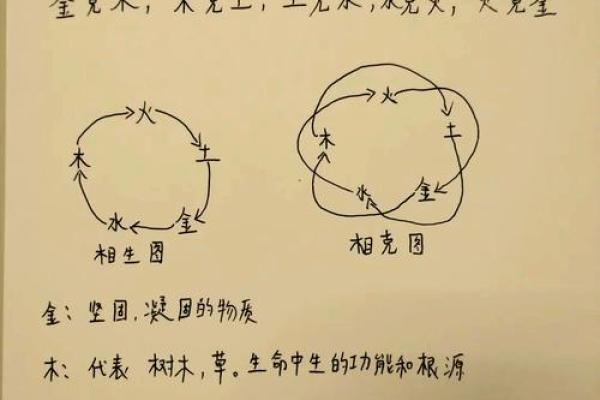 金克木，木克土，土克水，水克火，火克金
火
木 土
水 金
相生图
火
木 土
水 金
相克图
金：坚固，凝固的物质
木：代表 树木，草。生命中生的功能和根源